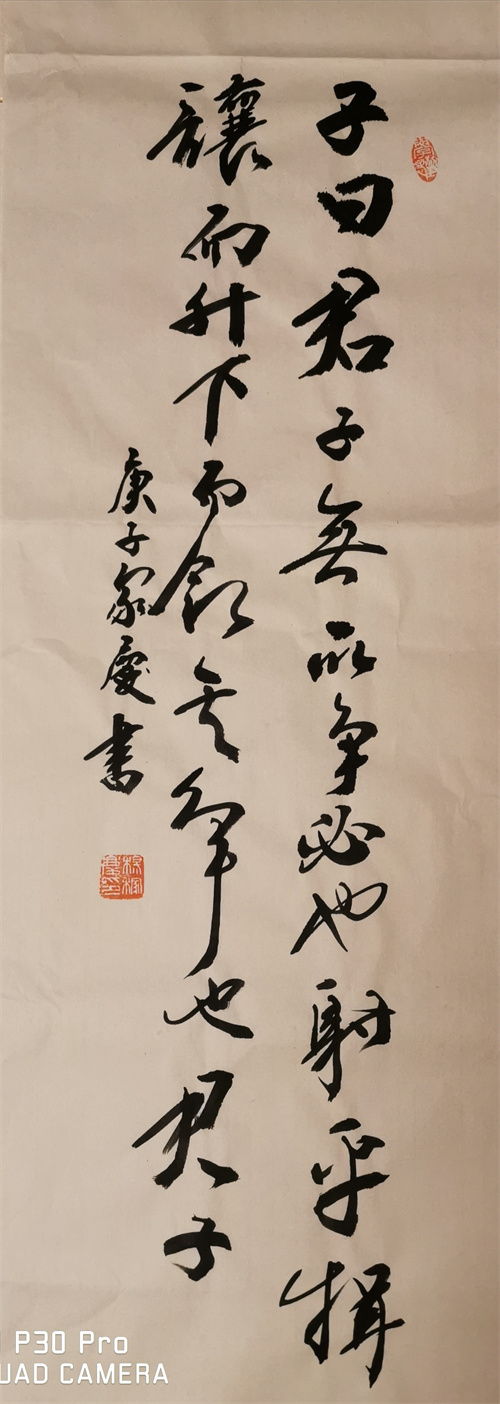 子曰君子無所争必也射乎揖
讓而升下而飲其争也君子
庚子家慶書
P30 Pro
UAD CAMERA